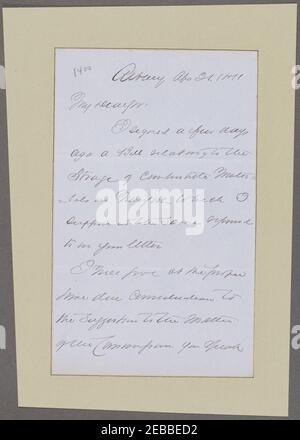 1400
Albany Apr 21. 1871
My dear Sir.
I signed a few days
ago a Bill relating to the
Storage of Combustible Mater-
ials in New York which I
suppose is the same referred
to in your letter
I will give at the proper
time due consideration to
the Suggestion to the Matter
of the Commission you speak
alamy
Image ID: 2EBBED2
www.alamy.com